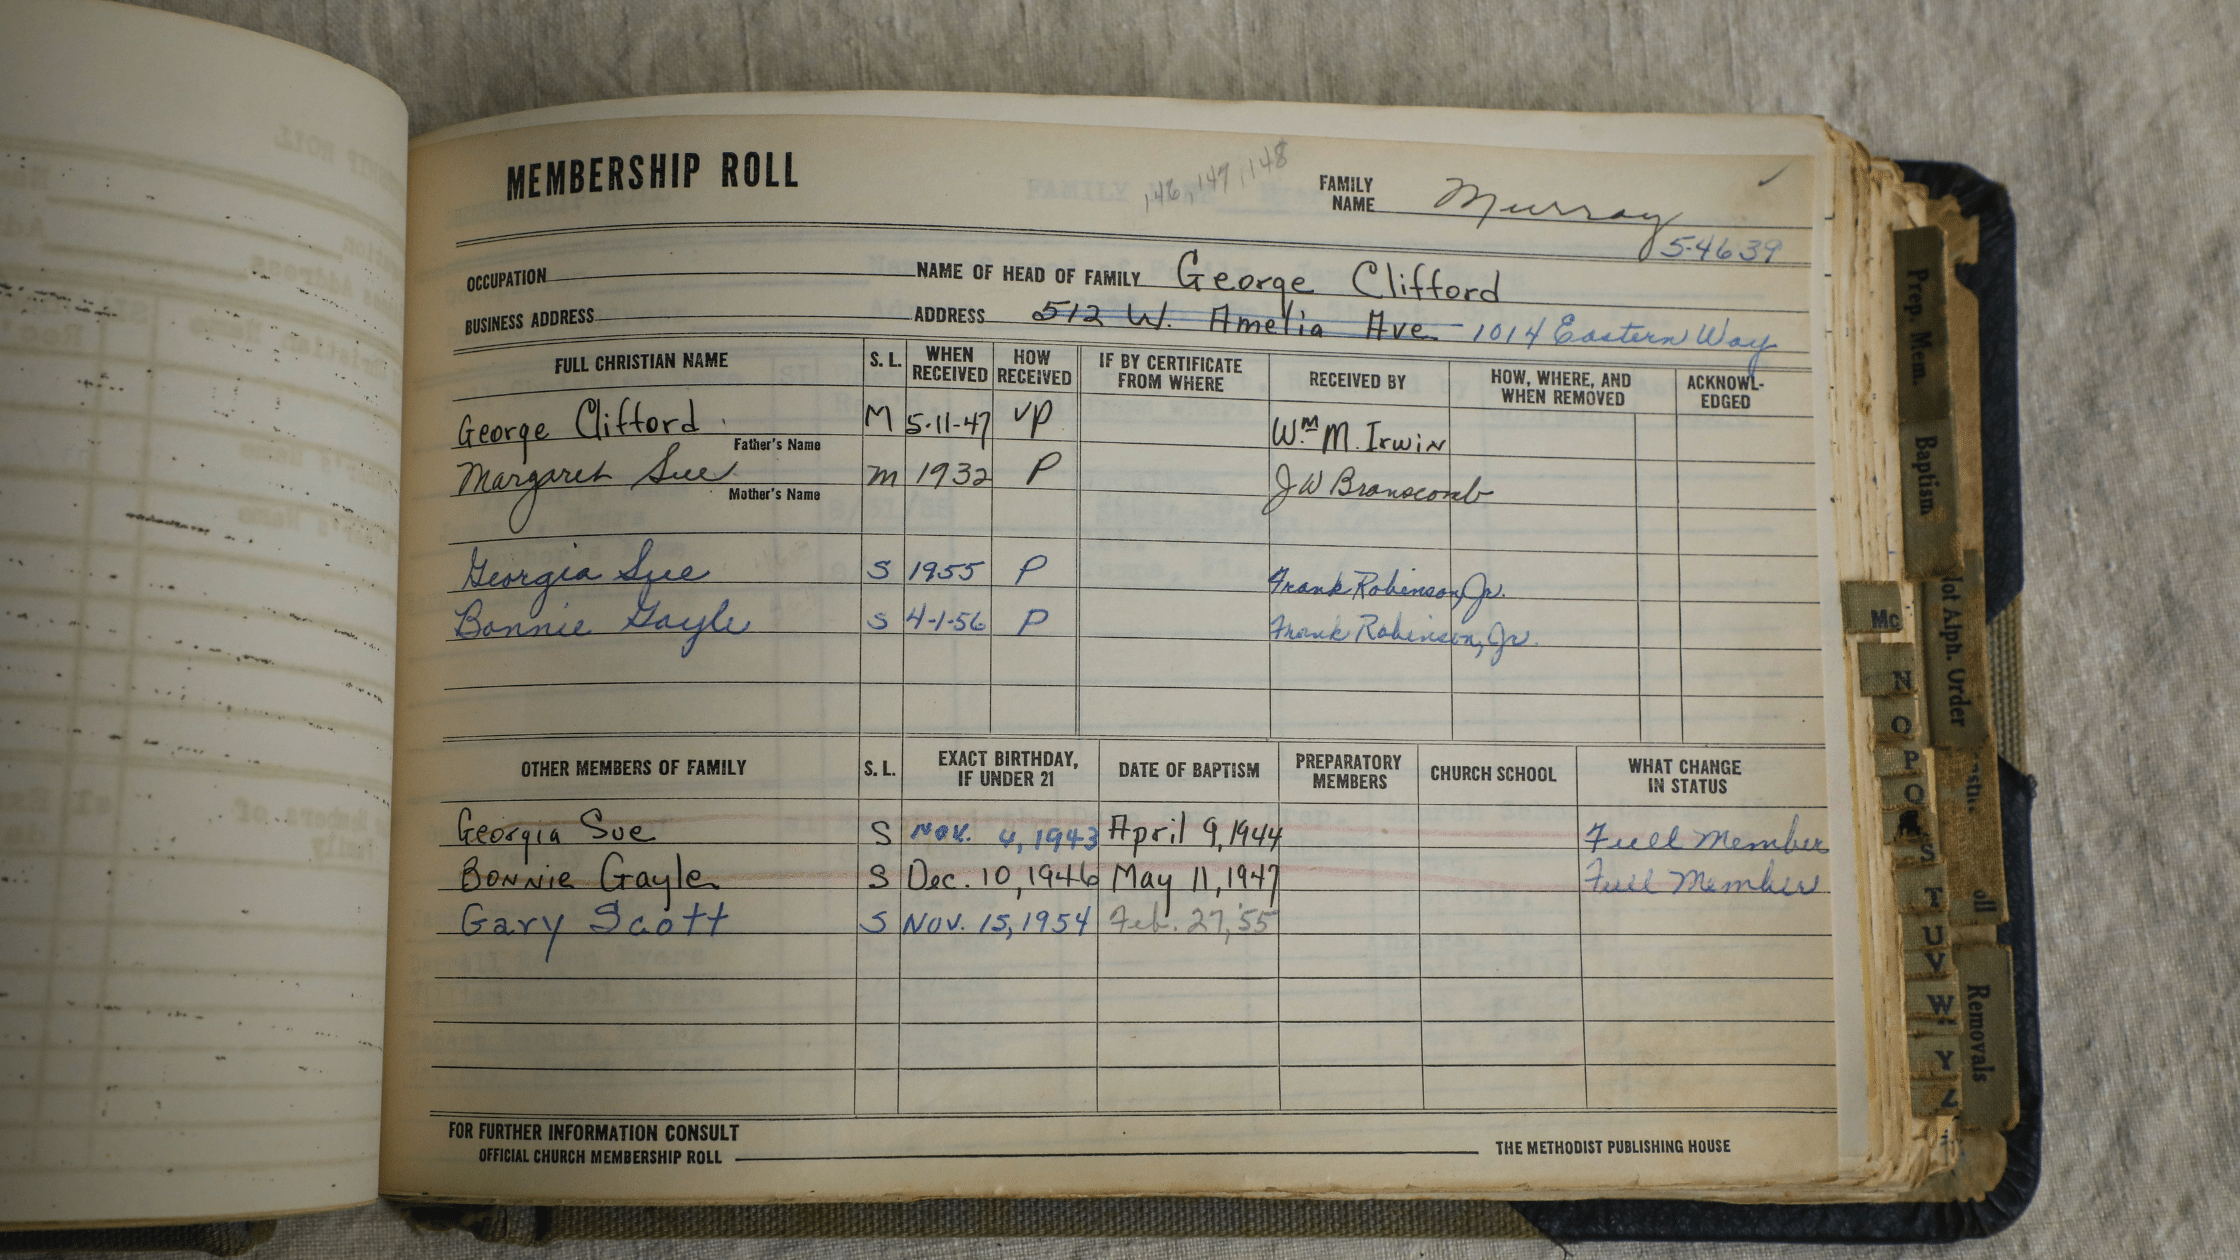 MEMBERSHIP ROLL
146, 147, 148
FAMILY NAME Murray
5-4639
OCCUPATION NAME OF HEAD OF FAMILY George Clifford
BUSINESS ADDRESS ADDRESS 512 W. Amelia Ave - 1014 Eastern Way
FULL CHRISTIAN NAME S. L. WHEN RECEIVED HOW RECEIVED IF BY CERTIFICATE FROM WHERE RECEIVED BY HOW, WHERE, AND WHEN REMOVED ACKNOWL-EDGED
George Clifford M 5-11-47 VP Wm M. Irwin
Father's Name
Margaret Sue M 1932 P J W Branscomb
Mother's Name
Georgia Sue S 1955 P Frank Robinson, Jr.
Bonnie Gayle S 4-1-56 P Frank Robinson, Jr.
OTHER MEMBERS OF FAMILY S. L. EXACT BIRTHDAY, IF UNDER 21 DATE OF BAPTISM PREPARATORY MEMBERS CHURCH SCHOOL WHAT CHANGE IN STATUS
Georgia Sue S Nov. 4, 1943 April 9, 1944 Full Member
Bonnie Gayle S Dec. 10, 1946 May 11, 1947 Full Member
Gary Scott S Nov. 15, 1954 Feb. 27, '55
FOR FURTHER INFORMATION CONSULT
OFFICIAL CHURCH MEMBERSHIP ROLL THE METHODIST PUBLISHING HOUSE
Prep. Mem.
Baptism
Not Alph. Order
Removals
Mc
N
O
P
Q
S
T
U
V
W
Y
Z